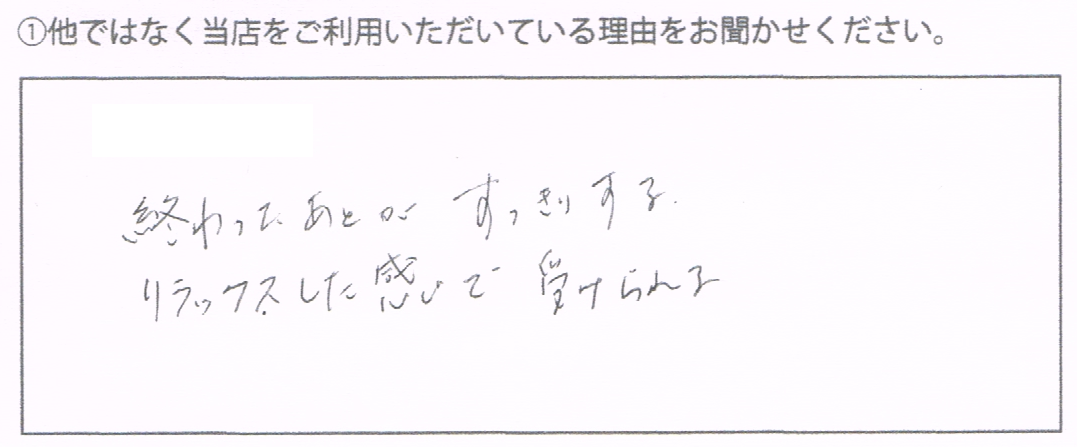 ①他ではなく当店をご利用いただいている理由をお聞かせください。
終わったあとが すっきりする.
リラックスした感じで 受けられる